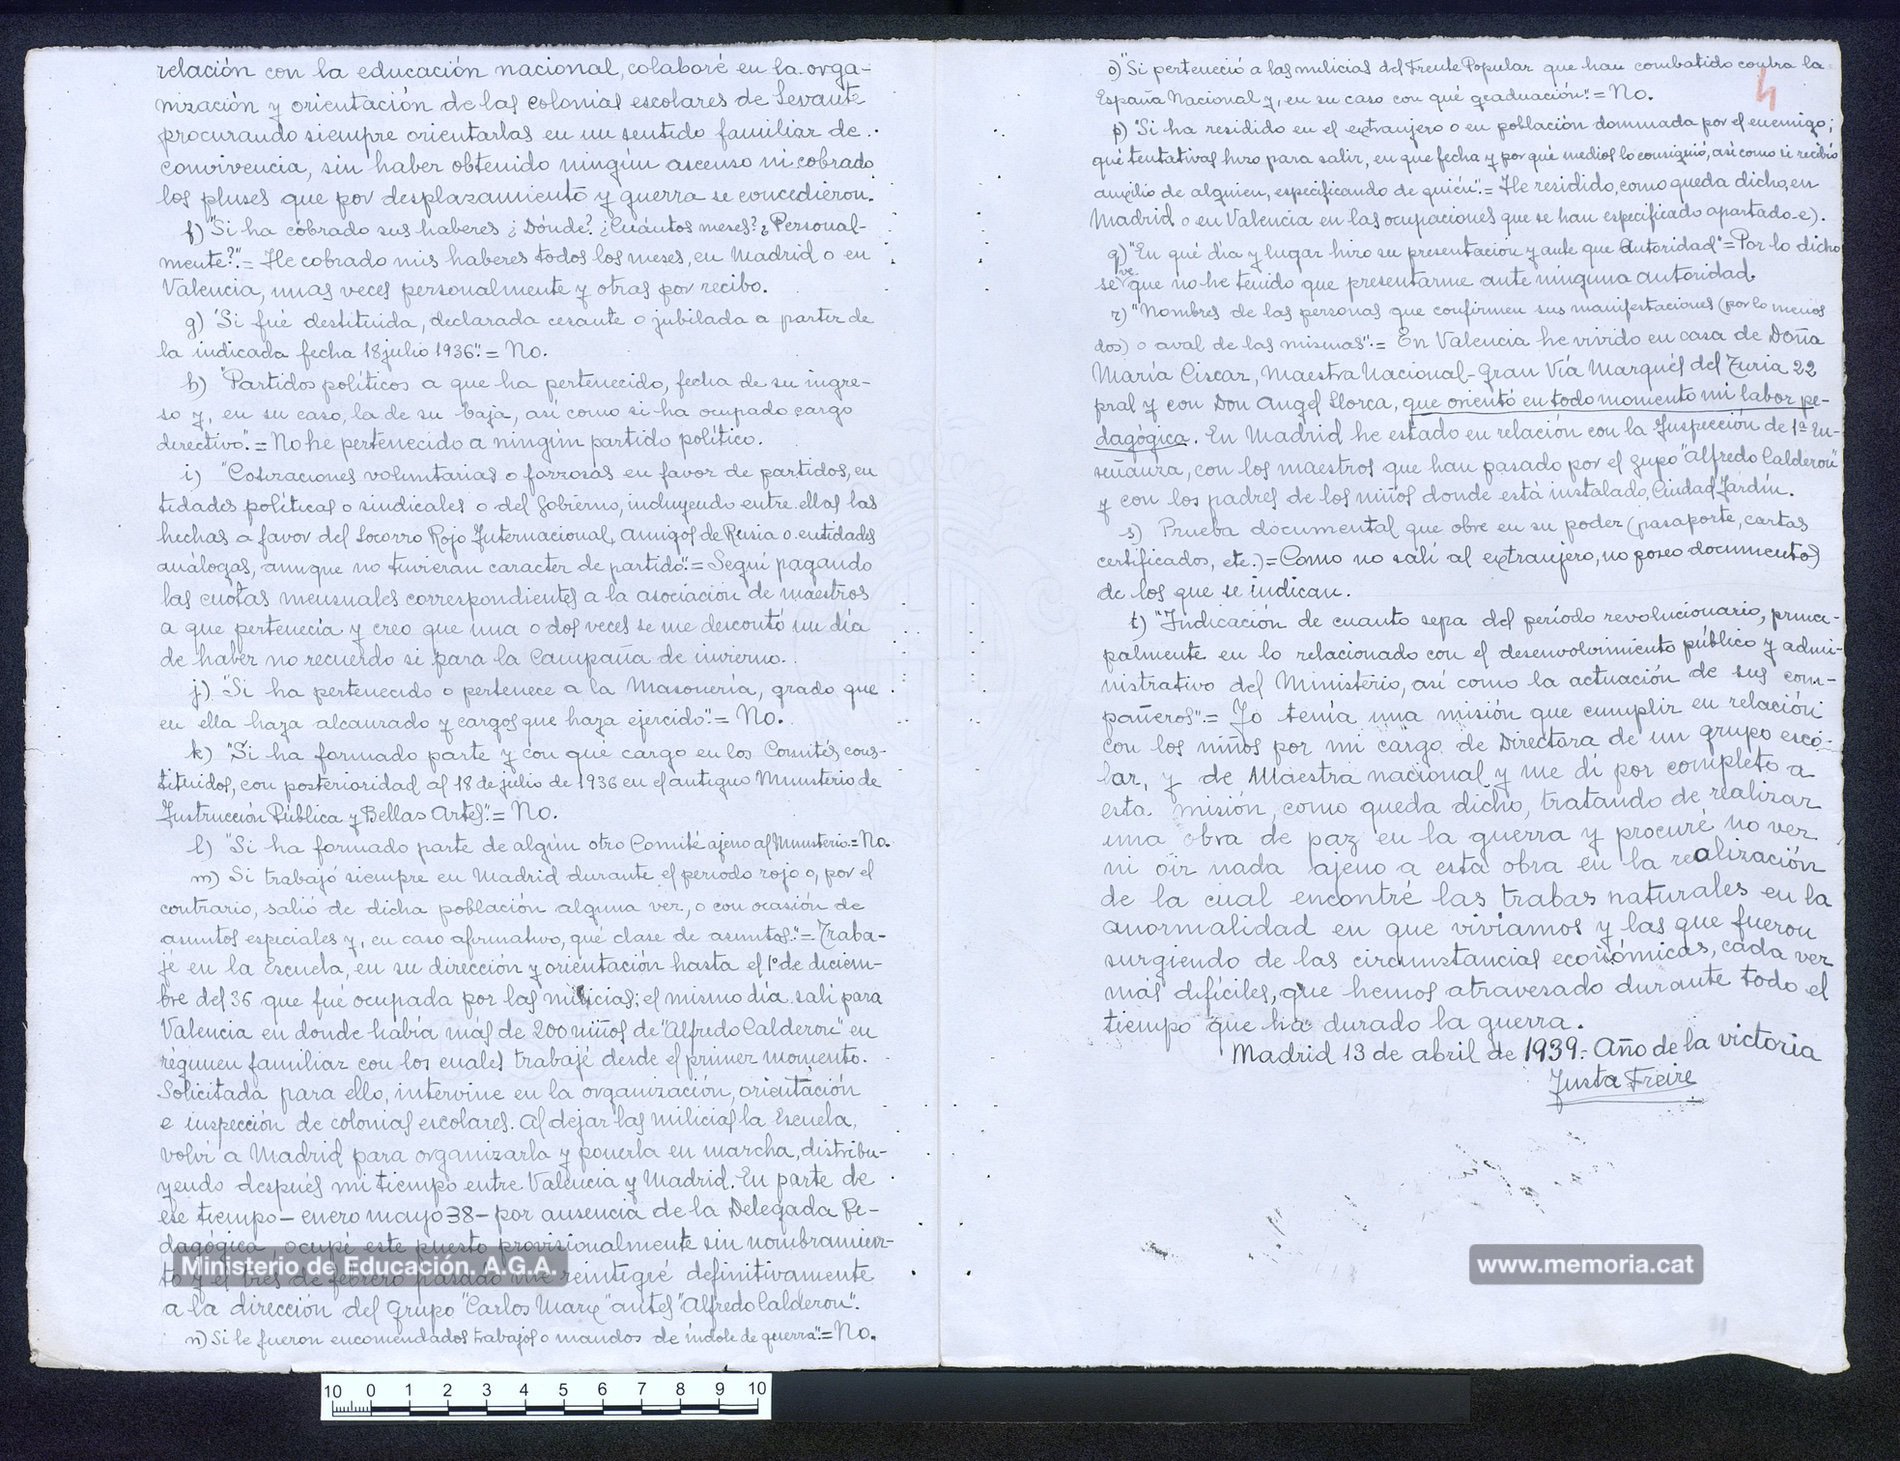 relación con la educación nacional, colaboré en la orga-
nización y orientación de las colonias escolares de Levante
procurando siempre orientarlas en un sentido familiar de
convivencia, sin haber obtenido ningún ascenso ni cobrado
los pluses que por desplazamiento y guerra se concedieron.
f) "Si ha cobrado sus haberes ¿Dónde? ¿Cuántos meses? ¿Personal-
mente?".= He cobrado mis haberes todos los meses, en Madrid o en
Valencia, unas veces personalmente y otras por recibo.
g) "Si fué destituida, declarada cesante o jubilada a partir de
la indicada fecha 18 julio 1936".= No.
h) "Partidos políticos a que ha pertenecido, fecha de su ingre-
so y, en su caso, la de su baja, así como si ha ocupado cargo
directivo".= No he pertenecido a ningún partido político.
i) "Cotizaciones voluntarias o forzosas en favor de partidos, en
tidades políticas o sindicales o del Gobierno, incluyendo entre ellas las
hechas a favor del Socorro Rojo Internacional, Amigos de Rusia o entidades
análogas, aunque no tuvieran caracter de partido".= Seguí pagando
las cuotas mensuales correspondientes a la asociación de maestros
a que pertenecía y creo que una o dos veces se me descontó un día
de haber no recuerdo si para la Campaña de invierno.
j) "Si ha pertenecido o pertenece a la Masonería, grado que
en ella haya alcanzado y cargos que haya ejercido".= No.
k) "Si ha formado parte y con qué cargo en los Comités cons-
tituidos, con posterioridad al 18 de julio de 1936 en el antiguo Ministerio de
Instrucción Pública y Bellas Artes".= No.
l) "Si ha formado parte de algún otro Comité ajeno al Ministerio.= No.
m) Si trabajó siempre en Madrid durante el período rojo o, por el
contrario, salió de dicha población alguna vez, o con ocasión de
asuntos especiales y, en caso afirmativo, qué clase de asuntos".= Traba-
jé en la Escuela, en su dirección y orientación hasta el 1º de diciem-
bre del 36 que fué ocupada por las milicias; el mismo día salí para
Valencia en donde había más de 200 niños de "Alfredo Calderón" en
régimen familiar con los cuales trabajé desde el primer momento.
Solicitada para ello, intervine en la organización, orientación
e inspección de colonias escolares. Al dejar las milicias la Escuela,
volví a Madrid para organizarla y ponerla en marcha, distribu-
yendo después mi tiempo entre Valencia y Madrid. En parte de
ese tiempo - enero mayo 38 - por ausencia de la Delegada Pe-
dagógica ocupé este puesto provisionalmente sin nombramien-
to y el tres de febrero pasado me reintegré definitivamente
a la dirección del Grupo "Carlos Marx" antes "Alfredo Calderon".
n) Si le fueron encomendados trabajos o mandos de índole de guerra".= No.
4
o) "Si perteneció a las milicias del Frente Popular que han combatido contra la
España Nacional y, en su caso con qué graduación".= No.
p) "Si ha residido en el extranjero o en población dominada por el enemigo;
qué tentativas hizo para salir, en que fecha y por qué medios lo consiguió, así como si recibió
auxilio de alguien, especificando de quién".= He residido, como queda dicho, en
Madrid o en Valencia en las ocupaciones que se han especificado apartado-e).
q) "En qué día y lugar hizo su presentación y ante que Autoridad"= Por lo dicho
se ve que no he tenido que presentarme ante ninguna autoridad.
r) "Nombres de las personas que confirmen sus manifestaciones (por lo menos
dos) o aval de las mismas".= En Valencia he vivido en casa de Doña
María Ciscar, Maestra Nacional - Gran Vía Marqués del Turia 22
pral y con Don Angel Llorca, que orientó en todo momento mi labor pe-
dagógica. En Madrid he estado en relación con la Inspección de 1ª En-
señanza, con los maestros que han pasado por el gupo "Alfredo Calderón"
y con los padres de los niños donde está instalado, Ciudad Jardín.
s) Prueba documental que obre en su poder (pasaporte, cartas
certificados, etc.) = Como no salí al extranjero, no poseo documentos
de los que se indican.
t) "Indicación de cuanto sepa del período revolucionario, princi-
palmente en lo relacionado con el desenvolvimiento público y admi-
nistrativo del Ministerio, así como la actuación de sus com-
pañeros".= Yo tenía una misión que cumplir en relación
con los niños por mi cargo de Directora de un grupo esco-
lar, y de Maestra nacional y me dí por completo a
esta misión, como queda dicho, tratando de realizar
una obra de paz en la guerra y procuré no ver
ni oir nada ajeno a esta obra en la realización
de la cual encontré las trabas naturales en la
anormalidad en que vivíamos y las que fueron
surgiendo de las circunstancias económicas, cada vez
más difíciles, que hemos atravesado durante todo el
tiempo que ha durado la guerra.
Madrid 13 de abril de 1939.- Año de la victoria
Justa Freire
Ministerio de Educación. A.G.A.
www.memoria.cat
10 0 1 2 3 4 5 6 7 8 9 10